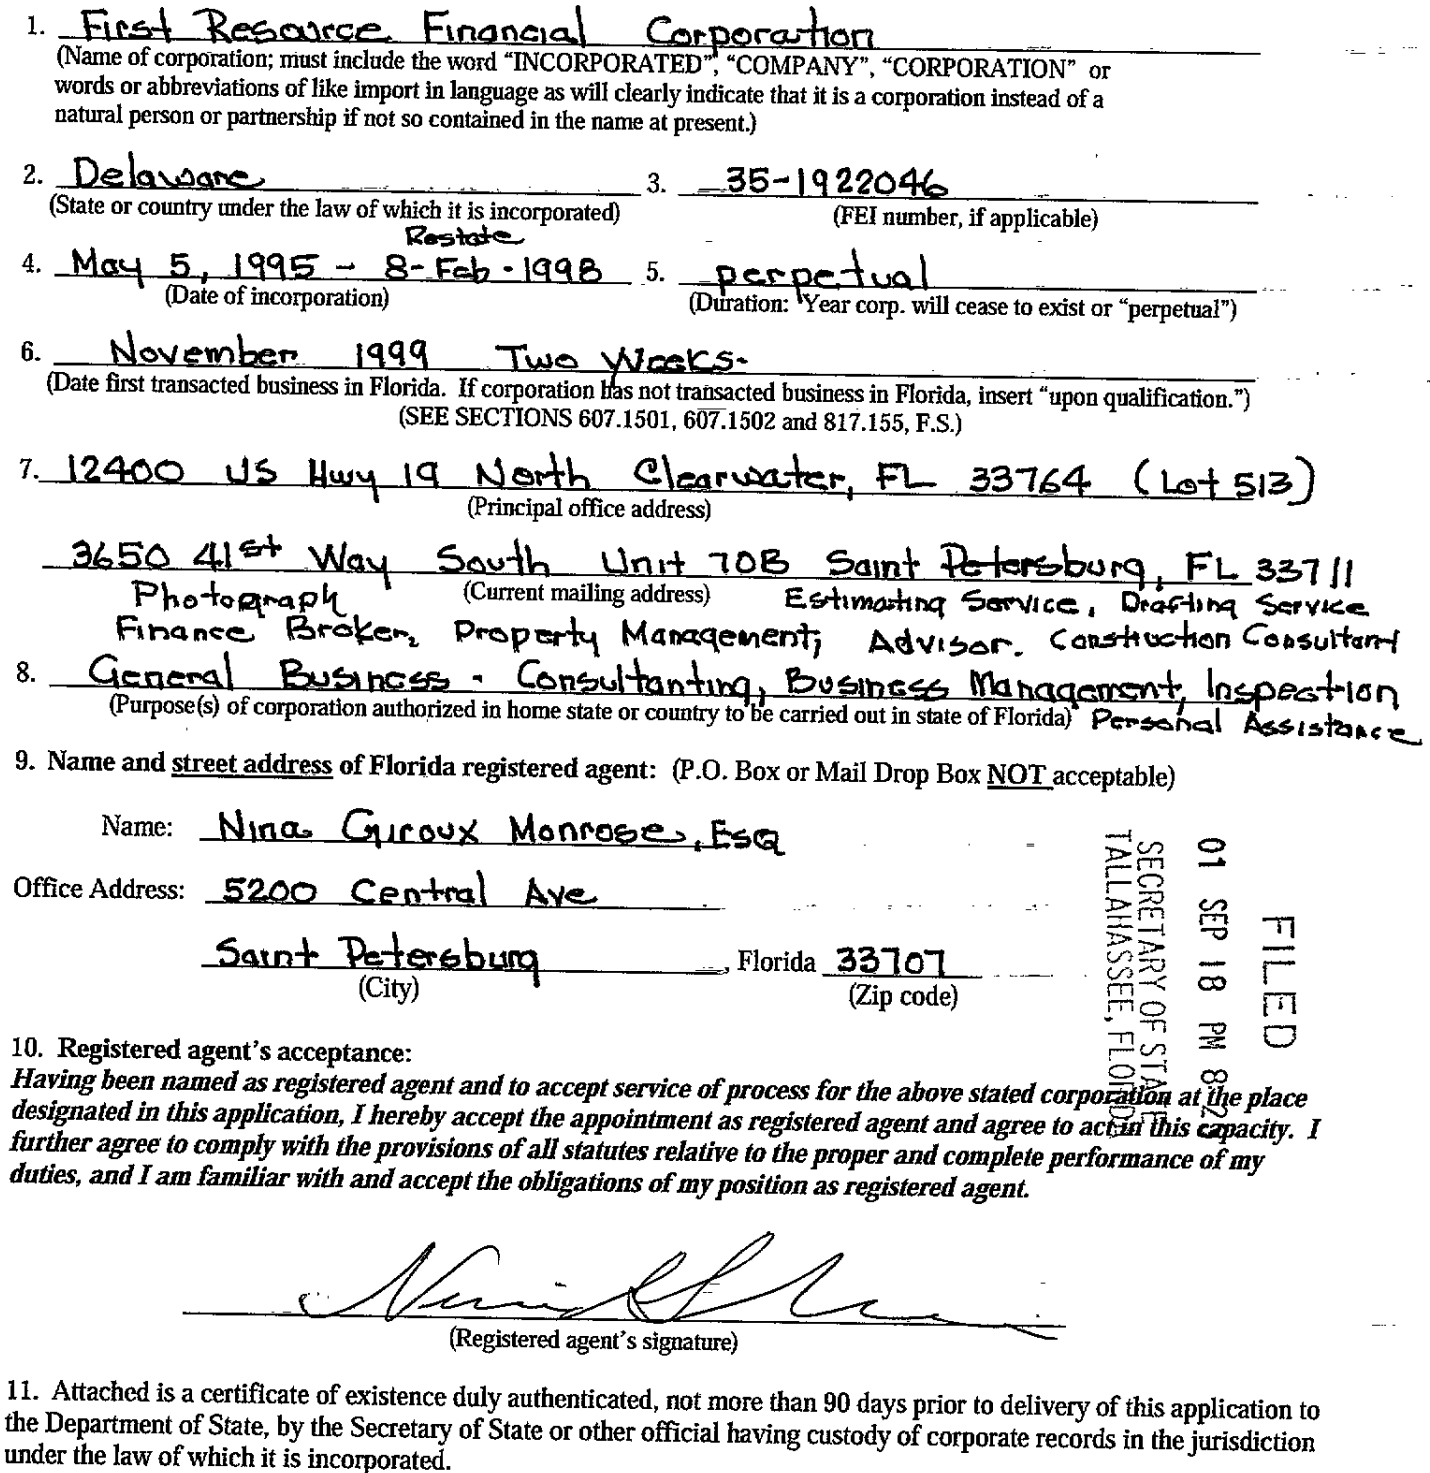 1. First Resource Financial Corporation
(Name of corporation; must include the word “INCORPORATED”, “COMPANY”, “CORPORATION” or
words or abbreviations of like import in language as will clearly indicate that it is a corporation instead of a
natural person or partnership if not so contained in the name at present.)
2. Delaware 3. 35-1922046
(State or country under the law of which it is incorporated) (FEI number, if applicable)
Restate
4. May 5, 1995 - 8-Feb-1998 5. perpetual
(Date of incorporation) (Duration: Year corp. will cease to exist or “perpetual”)
6. November 1999 Two Weeks-
(Date first transacted business in Florida. If corporation has not transacted business in Florida, insert “upon qualification.”)
(SEE SECTIONS 607.1501, 607.1502 and 817.155, F.S.)
7. 12400 US Hwy 19 North Clearwater, FL 33764 (Lot 513)
(Principal office address)
3650 41st Way South Unit 70B Saint Petersburg, FL 33711
(Current mailing address)
Photograph Estimating Service, Drafting Service
Finance Broker, Property Management; Advisor. Construction Consultant
8. General Business - Consultanting, Business Management, Inspection
(Purpose(s) of corporation authorized in home state or country to be carried out in state of Florida) Personal Assistance
9. Name and street address of Florida registered agent: (P.O. Box or Mail Drop Box NOT acceptable)
Name: Nina Giroux Monrose, Esq
Office Address: 5200 Central Ave
Saint Petersburg, Florida 33707
(City) (Zip code)
FILED
01 SEP 18 PM 8:
SECRETARY OF STATE
TALLAHASSEE, FLORIDA
10. Registered agent's acceptance:
Having been named as registered agent and to accept service of process for the above stated corporation at the place
designated in this application, I hereby accept the appointment as registered agent and agree to act in this capacity. I
further agree to comply with the provisions of all statutes relative to the proper and complete performance of my
duties, and I am familiar with and accept the obligations of my position as registered agent.
(Registered agent's signature)
11. Attached is a certificate of existence duly authenticated, not more than 90 days prior to delivery of this application to
the Department of State, by the Secretary of State or other official having custody of corporate records in the jurisdiction
under the law of which it is incorporated.